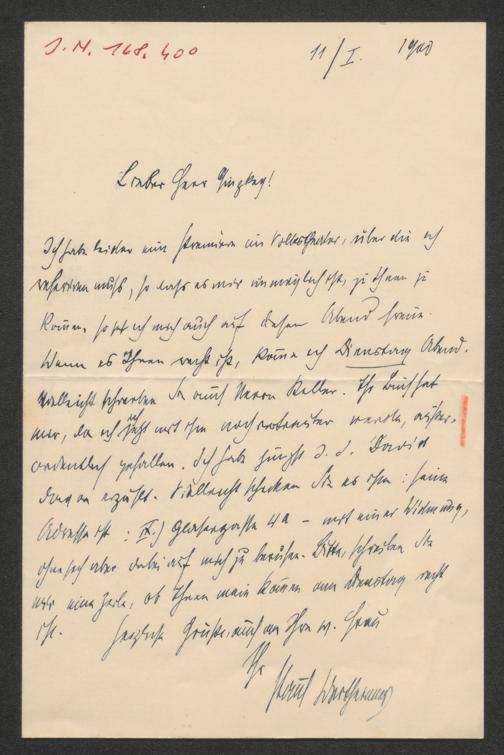 J.N. 168.400
11/I. 1900
Lieber Herr Ginzkey!
Ich habe leider eine Premiere im Volkstheater, über die ich
referieren muß, so dass es mir unmöglich ist, zu Ihnen zu
kommen, so sehr ich mich auch auf diesen Abend freue.
Wenn es Ihnen recht ist, komme ich Dienstag Abend.
Vielleicht schreiben Sie auch Herrn Keller. Ihr Buch hat
mir, da ich jetzt erst ihm noch vertrauter werde, außer-
ordentlich gefallen. Ich habe jüngst J. J. David
davon erzählt. Vielleicht schicken Sie es ihm: seine
Adresse ist: IX.) Glasergasse 4a – mit einer Widmung,
ohne sich aber dabei auf mich zu berufen. Bitte, schreiben Sie
mir eine Zeile, ob Ihnen mein Kommen am Dienstag recht
ist. Herzliche Grüße, auch an Ihre w. Frau
Ihr